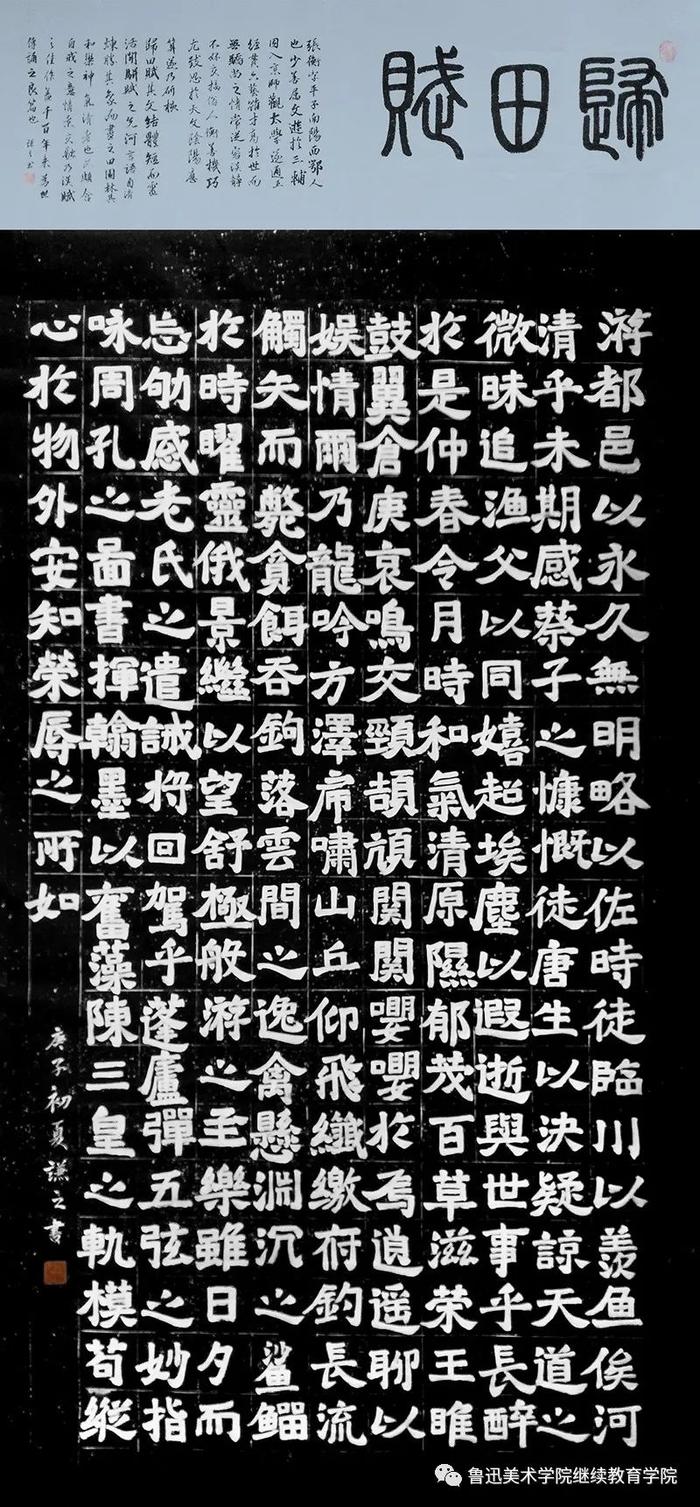 歸田賦
張衡字平子南陽西鄂人
也少善屬文遊於三輔
因入京師觀太學遂通五
經貫六藝雖才高於世而
無驕尚之情常從容淡靜
不好交接俗人衡善機巧
尤致思於天文陰陽歷
算遂乃研核
歸田賦其文結體短而靈
活開駢賦之先河言語自清
和樂神氣
游都邑以永久無明略以佐時徒臨川以羨魚俟河
清乎未期感蔡子之慷慨徒唐生以決疑諒天道之
微昧追漁父以同嬉超埃塵以遐逝與世事乎長醉
於是仲春令月時和氣清原隰郁茂百草滋榮王雎
鼓翼倉庚哀鳴交頸頡頏関関嚶嚶於焉逍遥聊以
娛情爾乃龍吟方澤虎嘯山丘仰飛纖繳俯釣長流
觸矢而斃貪餌吞鉤落雲間之逸禽懸淵沉之鯊鰡
於時曜靈俄景繼以望舒極般游之至樂雖日夕而
忘劬感老氏之遺誡將回駕乎蓬廬彈五弦之妙指
咏周孔之圖書揮翰墨以奮藻陳三皇之軌模苟縱
心於物外安知榮辱之所如
庚子初夏謙之書
鲁迅美术学院继续教育学院